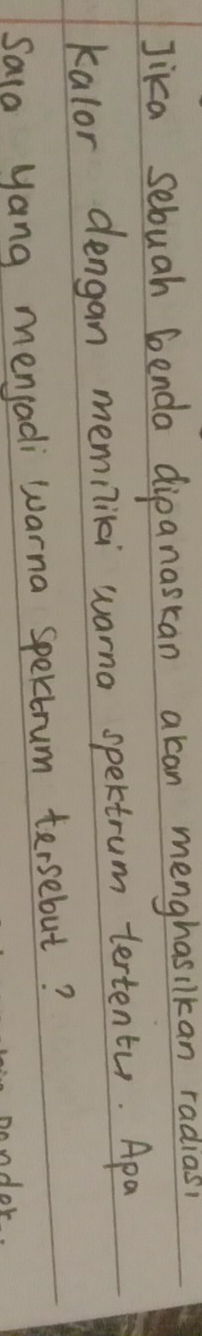 Jika sebuah benda dipanaskan akan menghasilkan radiasi
kalor dengan memiliki warna spektrum tertentu. Apa
saja yang menjadi warna spektrum tersebut?